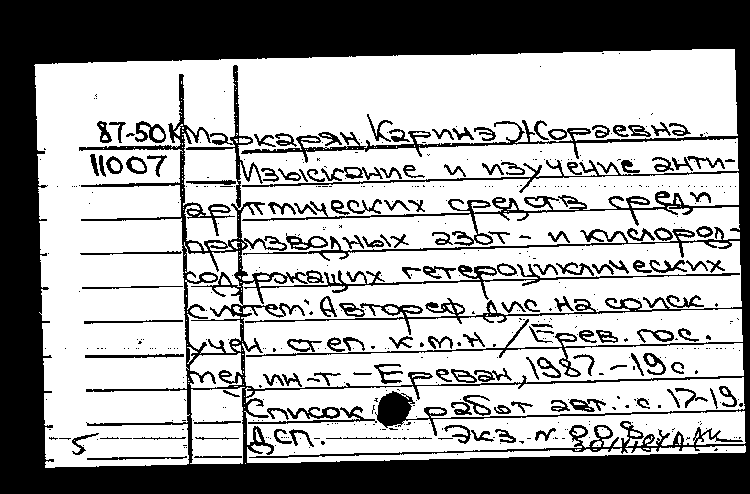 87-50К Маркарян, Карина Жораевна.
11007 Изыскание и изучение анти-
аритмических средств среди
производных азот- и кислород-
содержащих гетероциклических
систем: Автореф. дис. на соиск.
учен. степ. к.м.н. / Ерев. гос.
мед. ин-т. - Ереван, 1987. - 19 с.
Список работ авт.: с. 17-19.
5 ДСП. Экз. N